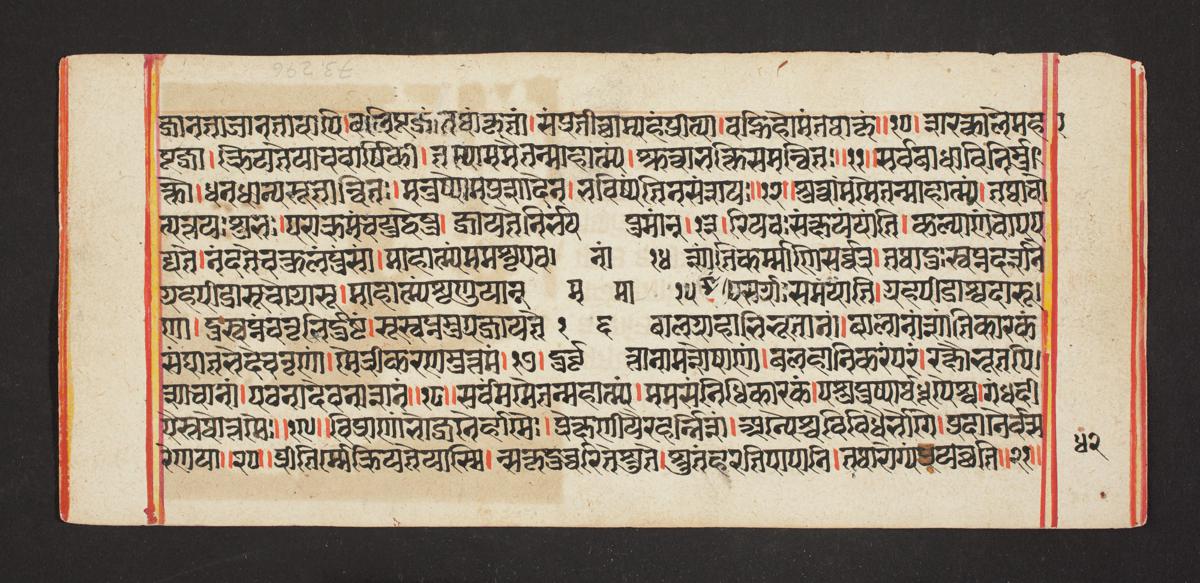 ज्ञानताज्ञानतावापि। बलिपूजांतथांकृतां। संप्रतीच्छाम्यहंप्रीत्या। वह्निहोमंतथाकृतं॥१०। शरत्कालेमहा
पूजा। क्रियतेयाचवार्षिकी। तस्यांममैतन्माहात्म्यं। श्रुत्वाभक्तिसमन्वितः॥११। सर्वबाधाविनिर्मु
क्तो। धनधान्यसूतान्वितः। मनुष्योमत्प्रसादेन। भविष्यतिनसंशयः॥१२। श्रुत्वांममैतन्माहात्म्यं। तथाचो
त्पत्तयःशुभाः। पराक्रमंचयुद्धेषु। जायतेनिर्भयः पुमान्। १३। रिपवःसंक्षयंयांति। कल्याणंचोपप
द्यते। नंदतेचकुलंपुंसां। माहात्म्यंममशृण्वतां १४ शांतिकर्म्माणिसर्वत्र। तथादुःस्वप्नदर्शने
ग्रहपीडासूचोग्रासू। माहात्म्यंशृणुयान् म म १५ पसर्गाःसमंयांति। ग्रहपीडाश्चदारू
णा। दुःस्वप्नंचनृभिर्दृष्टं। सुस्वप्नमुपजायते १६ बालग्रहाभिभूतानां। बालानांशांतिकारकं
संघातभेदेचनृणां। मैत्रीकरणमुत्तमं।१७। दुर्वृत्तानामशेषाणां। बलहानिकरंपरं। रक्षोभूतपि
शाचानां। पठनादेवनाशनं॥१८। सर्वंममैतन्महात्म्यं। ममसंनिधिकारकं। पश्रुपुष्पार्घधूपैश्च। गंधदी
पैस्तथोत्तमैः॥१९। विप्राणांभोजनैर्होमैः। प्रोक्षणीयैरहर्निशं। अन्यैश्चविविधैर्भोगै। प्रदानैर्वत्स
रेणया॥२०। प्रीतिर्मेक्रियतेसास्मि। न्सकृदुच्चरितेश्रुते। श्रुतंहरतिपापानि। तथारोग्यंप्रयच्छति॥२१॥
५२